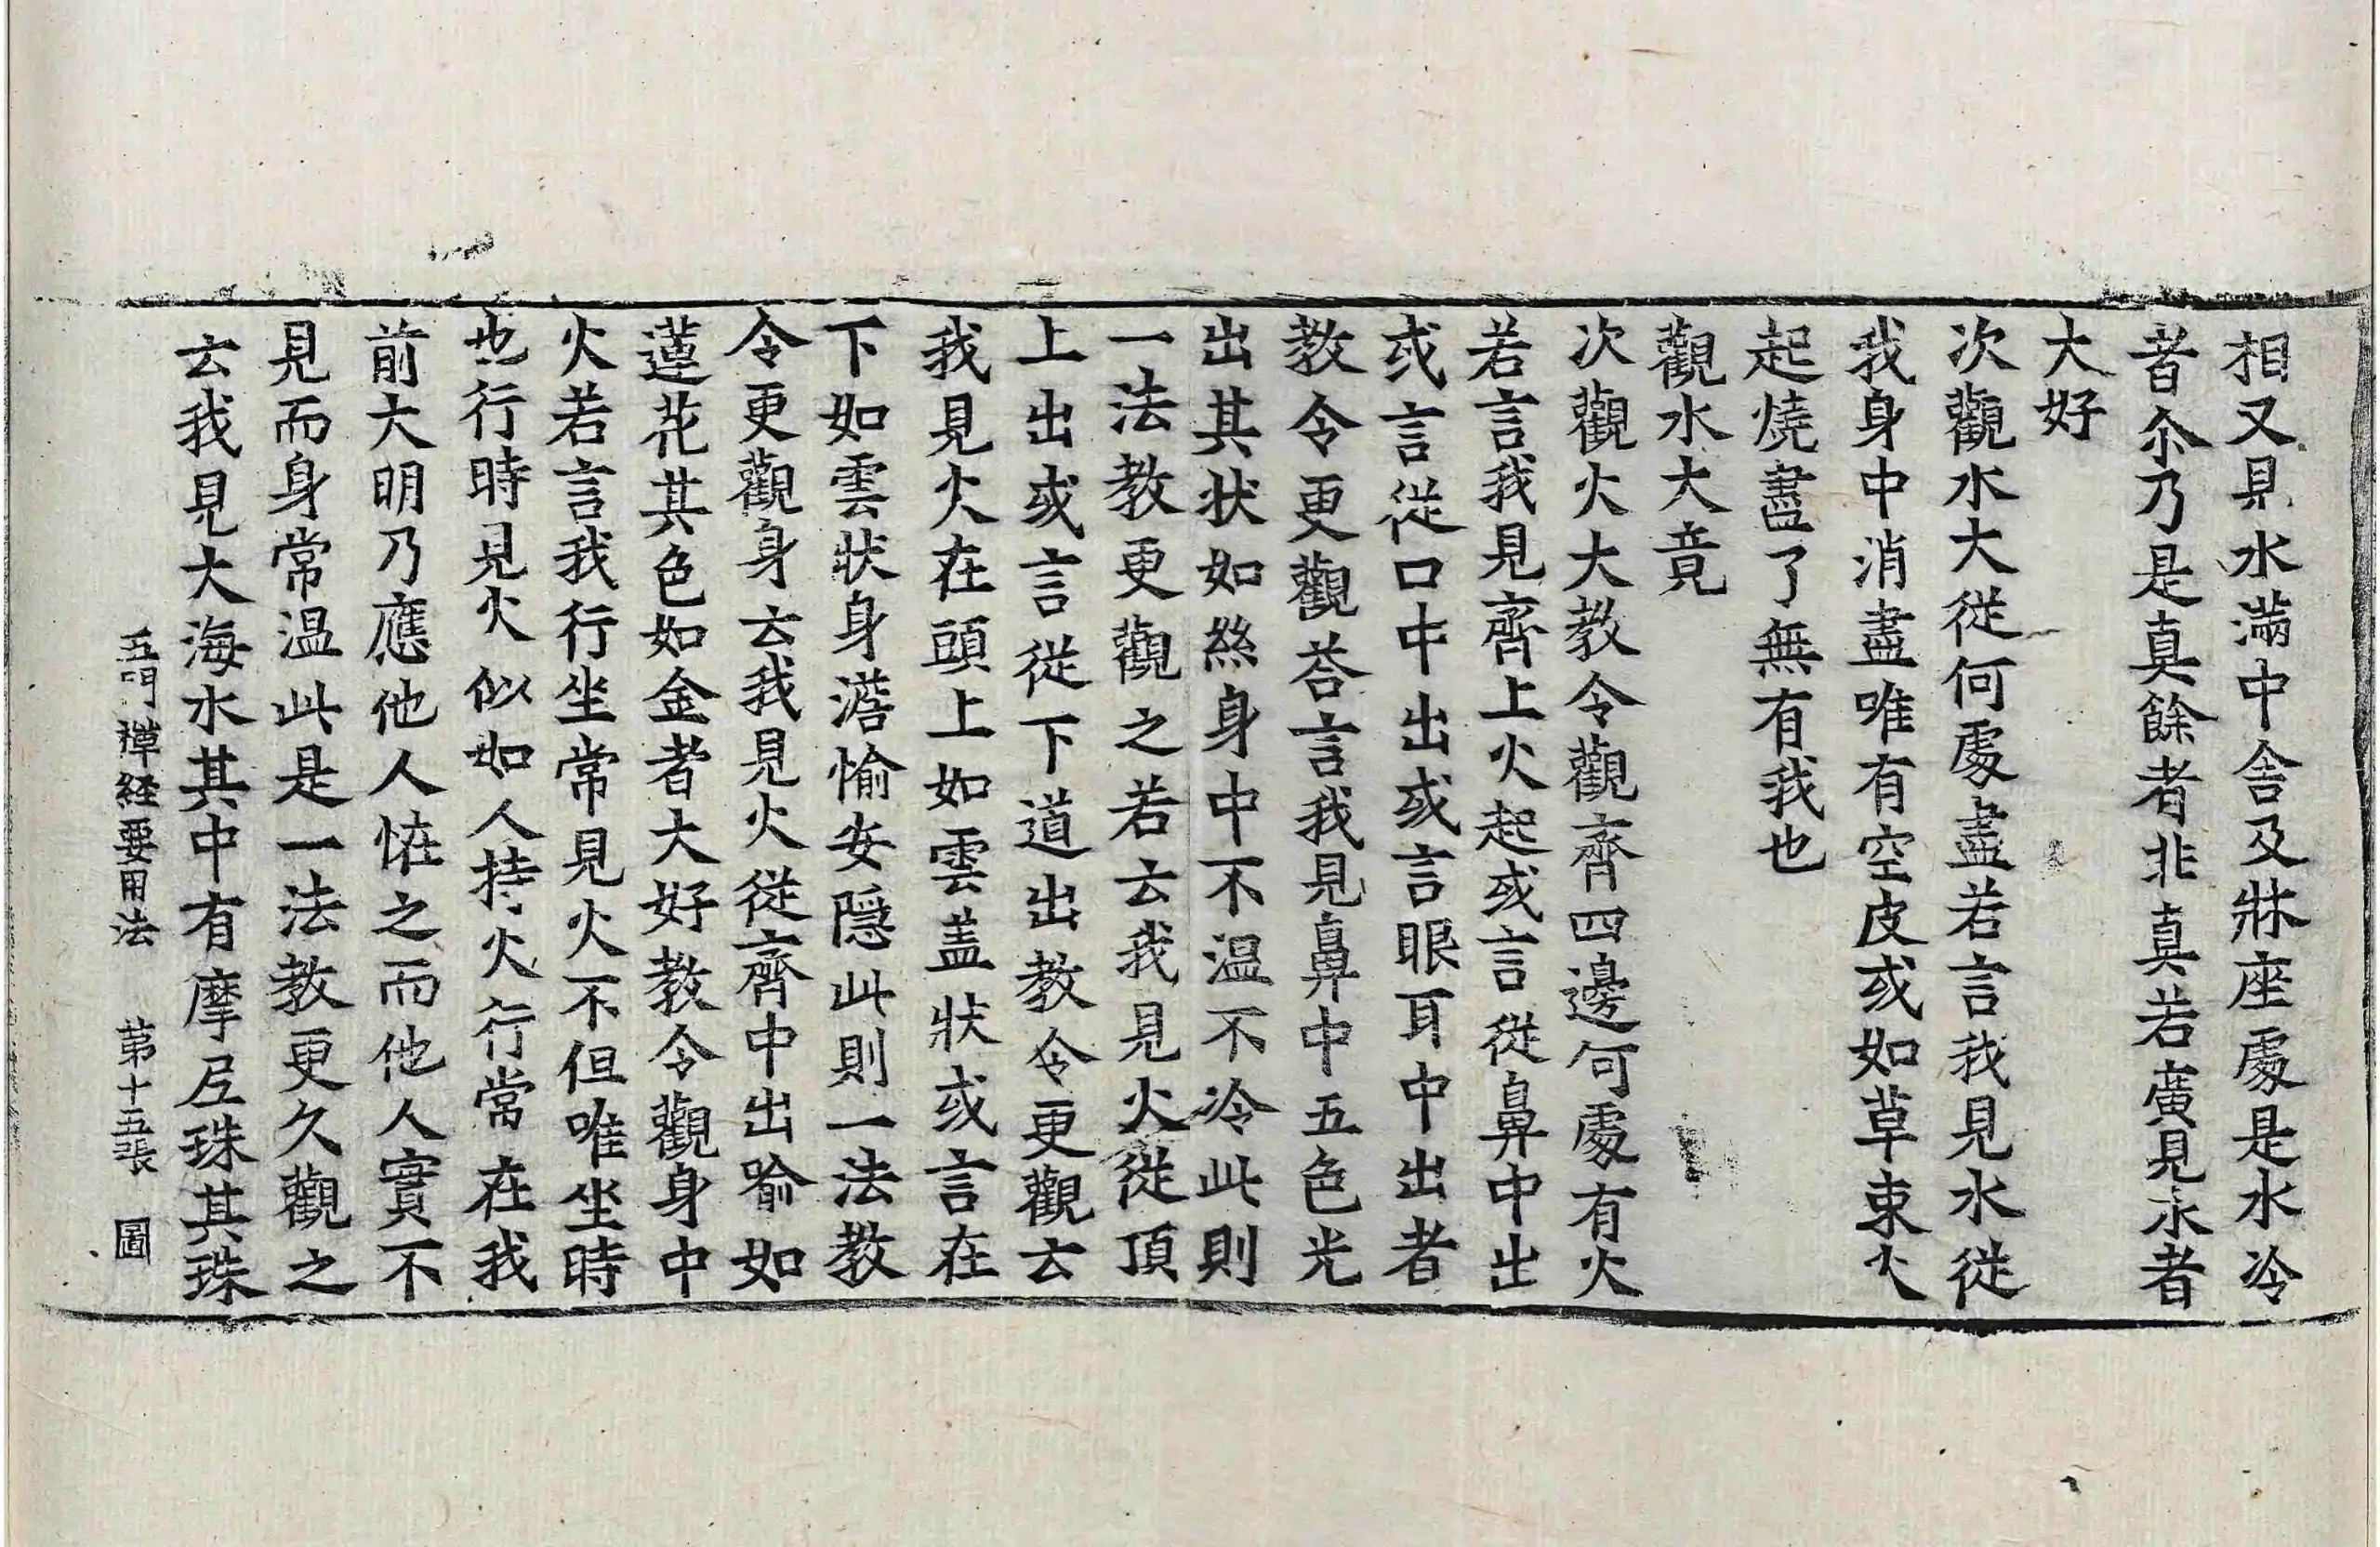 相又見水滿中舍及牀座處是水冷
者尒乃是真餘者非真若廣見水者
大好
次觀水大從何處盡若言我見水從
我身中消盡唯有空皮或如草束火
起燒盡了無有我也
觀水大竟
次觀火大教令觀齊四邊何處有火
若言我見齊上火起或言從鼻中出
或言從口中出或言眼耳中出者
教令更觀荅言我見鼻中五色光
出其狀如絲身中不温不冷此則
一法教更觀之若云我見火從頂
上出或言從下道出教令更觀云
我見火在頭上如雲盖狀或言在
下如雲狀身濡愉安隱此則一法教
令更觀身云我見火從齊中出喻如
蓮花其色如金者大好教令觀身中
火若言我行坐常見火不但唯坐時
也行時見火似如人持火行常在我
前大明乃應他人恠之而他人實不
見而身常温此是一法教更久觀之
云我見大海水其中有摩尼珠其珠
五門禪經要用法 苐十五張 圖